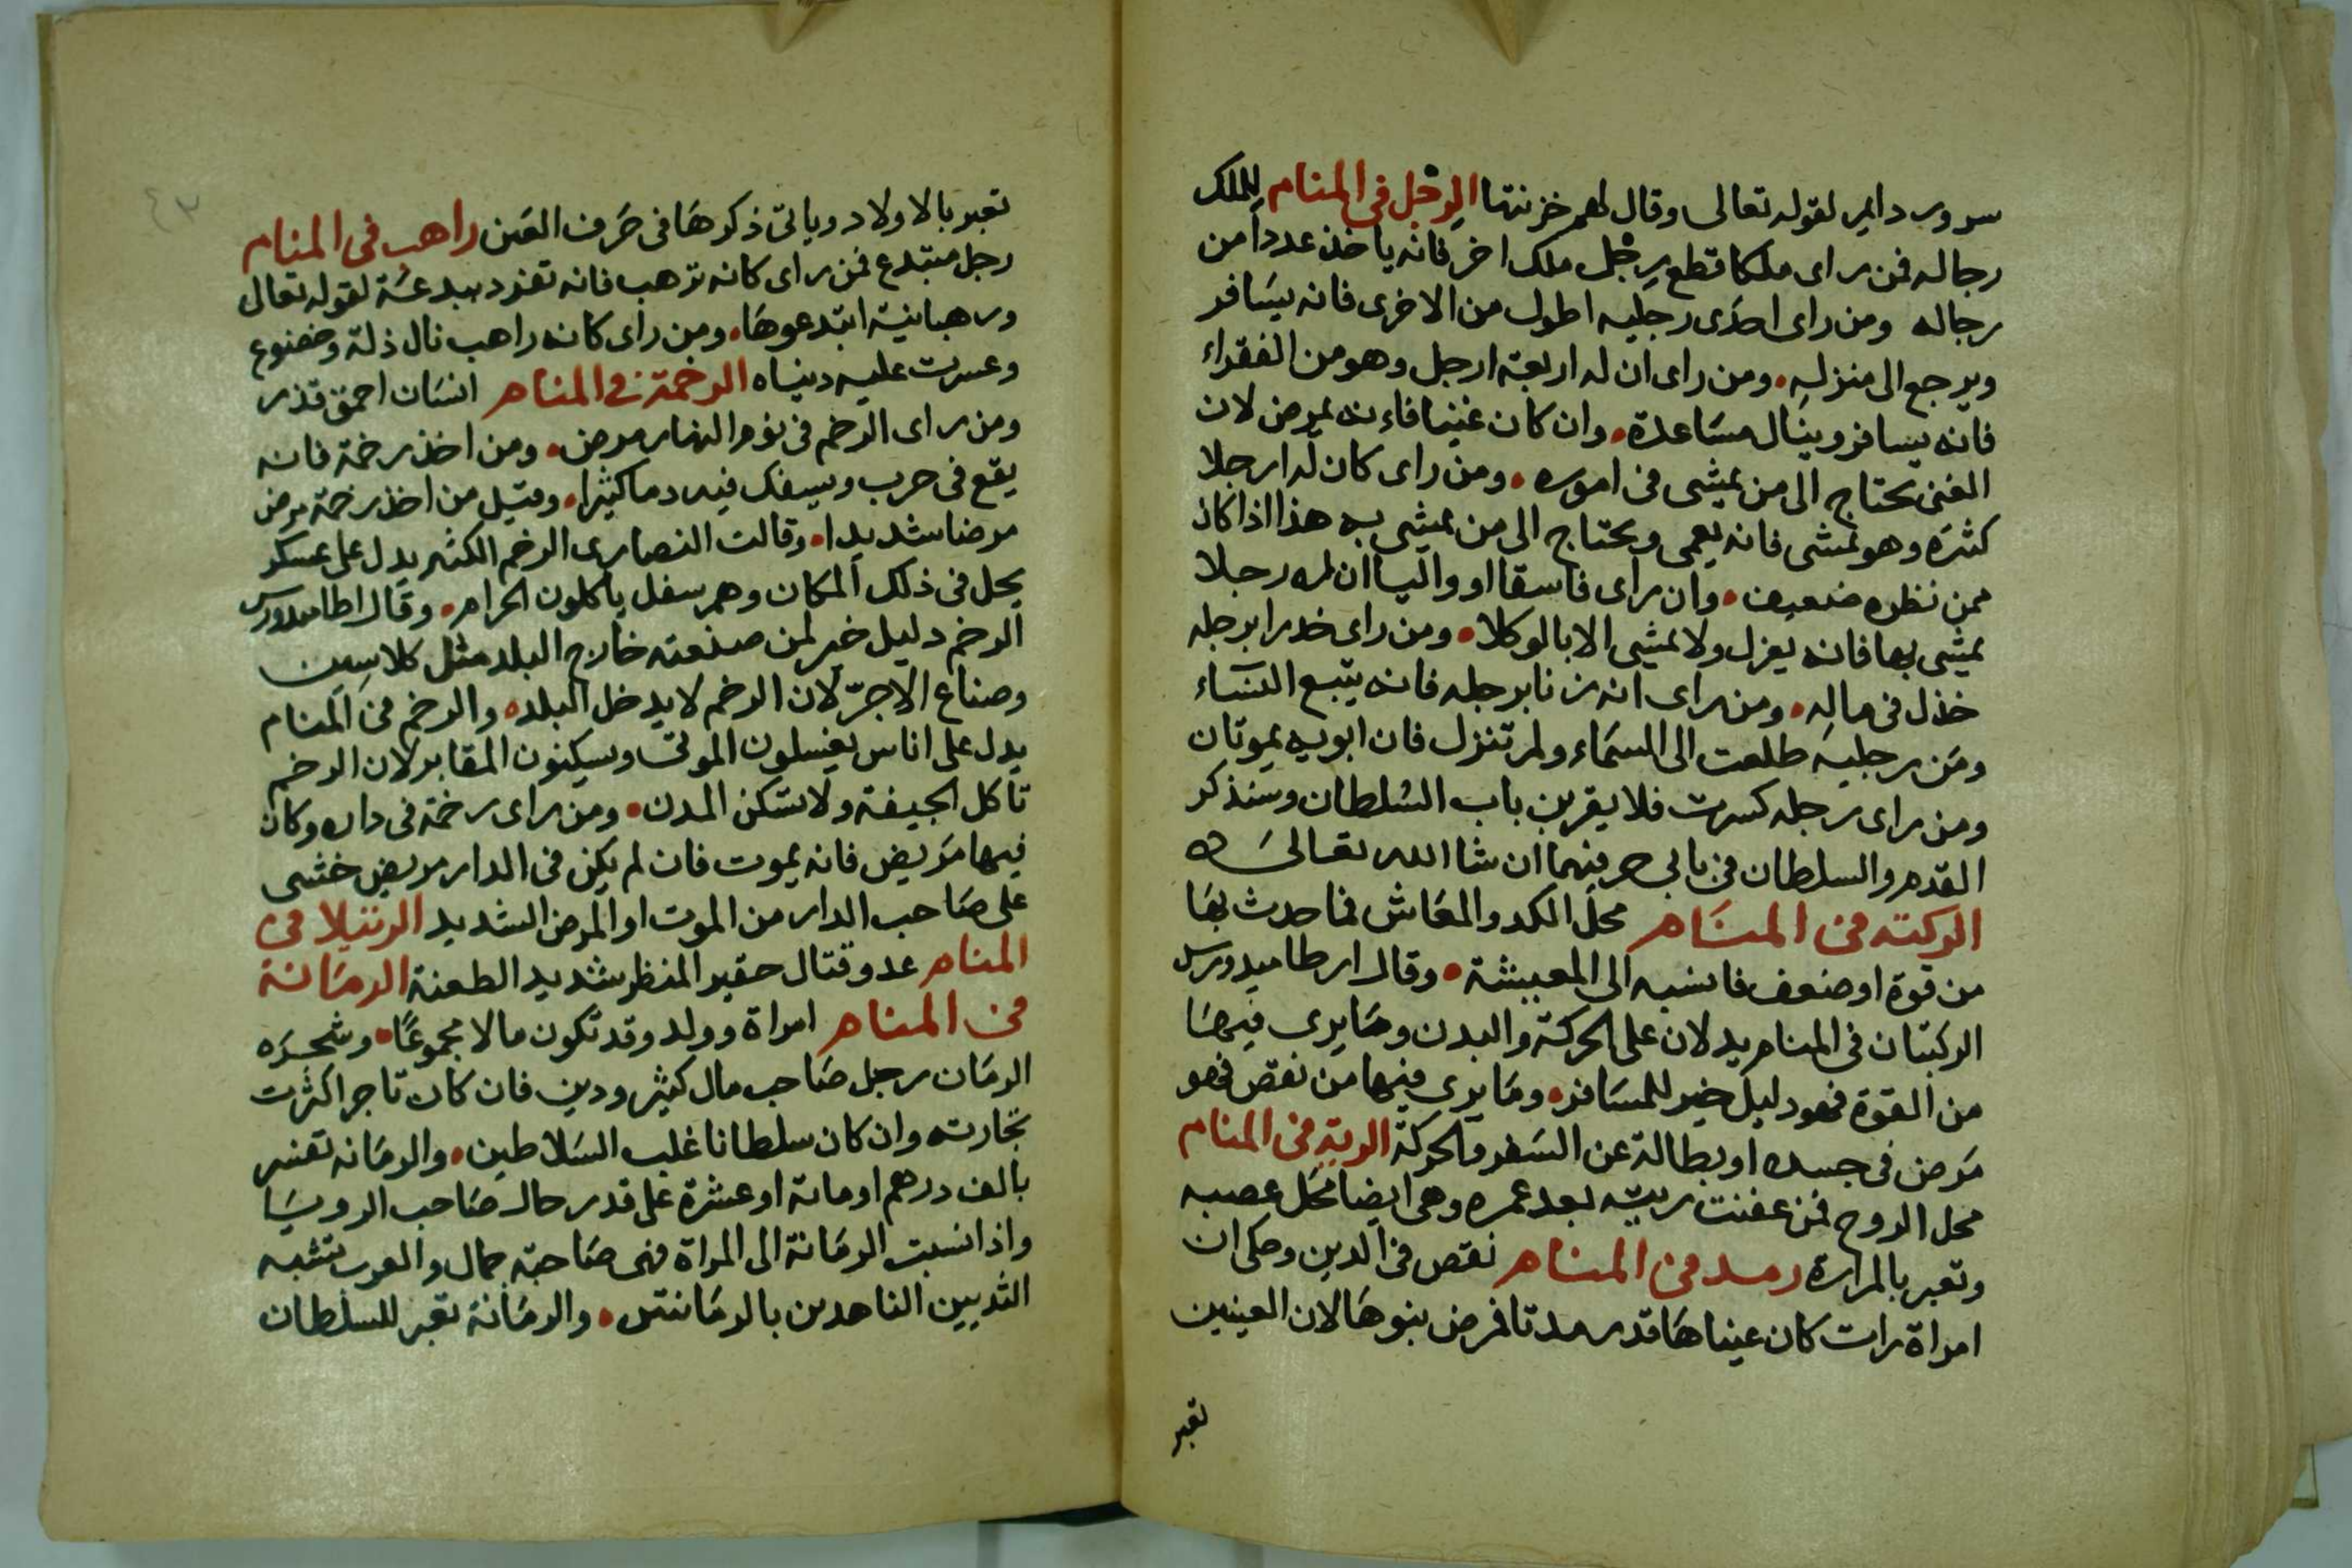 سرور دايم لقوله تعالى وقال لهم خزنتها الرجل في المنام للملك
رجاله فمن راى ملكا قطع رجل ملك اخر فانه ياخذ عددا من
رجاله ومن راى احدى رجليه اطول من الاخرى فانه يسافر
ويرجع الى منزله • ومن راى ان له اربعة ارجل وهو من الفقراء
فانه يسافر وينال مساعدة • وان كان غنيا فاءنه يمرض لان
الغني يحتاج الى من يمشى في اموره • ومن راى كان له ارجلا
كثره وهو يمشى فانه يعمى ويحتاج الى من يمشى به هذا اذا كان
ممن نظره ضعيف • وان راى فاسقا او واليا ان له رجلا
يمشى بها فانه يعزل ولا يمشى الا بالوكلا • ومن راى خدرا برجله
خذل في ماله • ومن راى انه زنا برجله فانه يتبع النساء
ومن رجليه طلعت الى السماء ولم تنزل فان ابويه يموتان
ومن راى رجله كسرت فلا يقربن باب السلطان وسنذكر
القدم والسلطان في بابي حرفيهما ان شا الله تعالى
الركبة في المنام محل الكد والمعاش فما حدث بها
من قوة او ضعف فانسبه الى المعيشة • وقال ارطاميدورس
الركبتان في المنام يدلان على الحركة والبدن وما يرى فيهما
من القوة فهو دليل خير للمسافر • وما يرى فيهما من نقص فهو
مرض في جسده او بطالة عن السفر والحركة الرية في المنام
محل الروح فمن عفنت ريته بعد عمره وهي ايضا محل عصبه
وتعبر بالمرارة رمد في المنام نقص في الدين وحكي ان
امراة رات كان عيناها قد رمدتا فمرض بنوها لان العينين
تعبر
٤٣
تعبر بالاولاد وياتي ذكرها في حرف العين راهب في المنام
رجل مبتدع فمن راى كانه ترهب فانه تفرد ببدعة لقوله تعالى
ورهبانية ابتدعوها • ومن راى كانه راهب نال ذلة وخضوع
وعسرت عليه دنياه الرخمة في المنام انسان احمق قذر
ومن راى الرخم في نوم النهار مرض • ومن اخذ رخمة فانه
يقع في حرب ويسفك فيه دما كثيرا • وقيل من اخذ رخمة مرض
مرضا شديدا • وقالت النصارى الرخم الكثير يدل على عسكر
يحل في ذلك المكان وهم سفل ياكلون الحرام • وقال اطاميدورس
الرخم دليل خير لمن صنعته خارج البلد مثل كلاسين
وصناع الاجر لان الرخم لا يدخل البلد • والرخم في المنام
يدل على اناس يغسلون الموتى ويسكنون المقابر لان الرخم
تاكل الجيفة ولا تسكن المدن • ومن راى رخمة في داره وكان
فيها مريض فانه يموت فان لم يكن في الدار مريض خشى
على صاحب الدار من الموت او المرض الشديد الرتيلا في
المنام عدو قتال حقير المنظر شديد الطعنة الرمانة
في المنام امراة وولد وقد تكون مالا مجموعا • وشجره
الرمان رجل صاحب مال كثير ودين فان كان تاجرا كثرت
تجارته وان كان سلطانا غلب السلاطين • والرمانه تفسر
بالف درهم او مائة او عشرة على قدر حال صاحب الرويا
واذا نسبت الرمانة الى المراة فهي صاحبة جمال والعرب تشبه
الثديين الناهدين بالرمانتين • والرمانة تعبر للسلطان